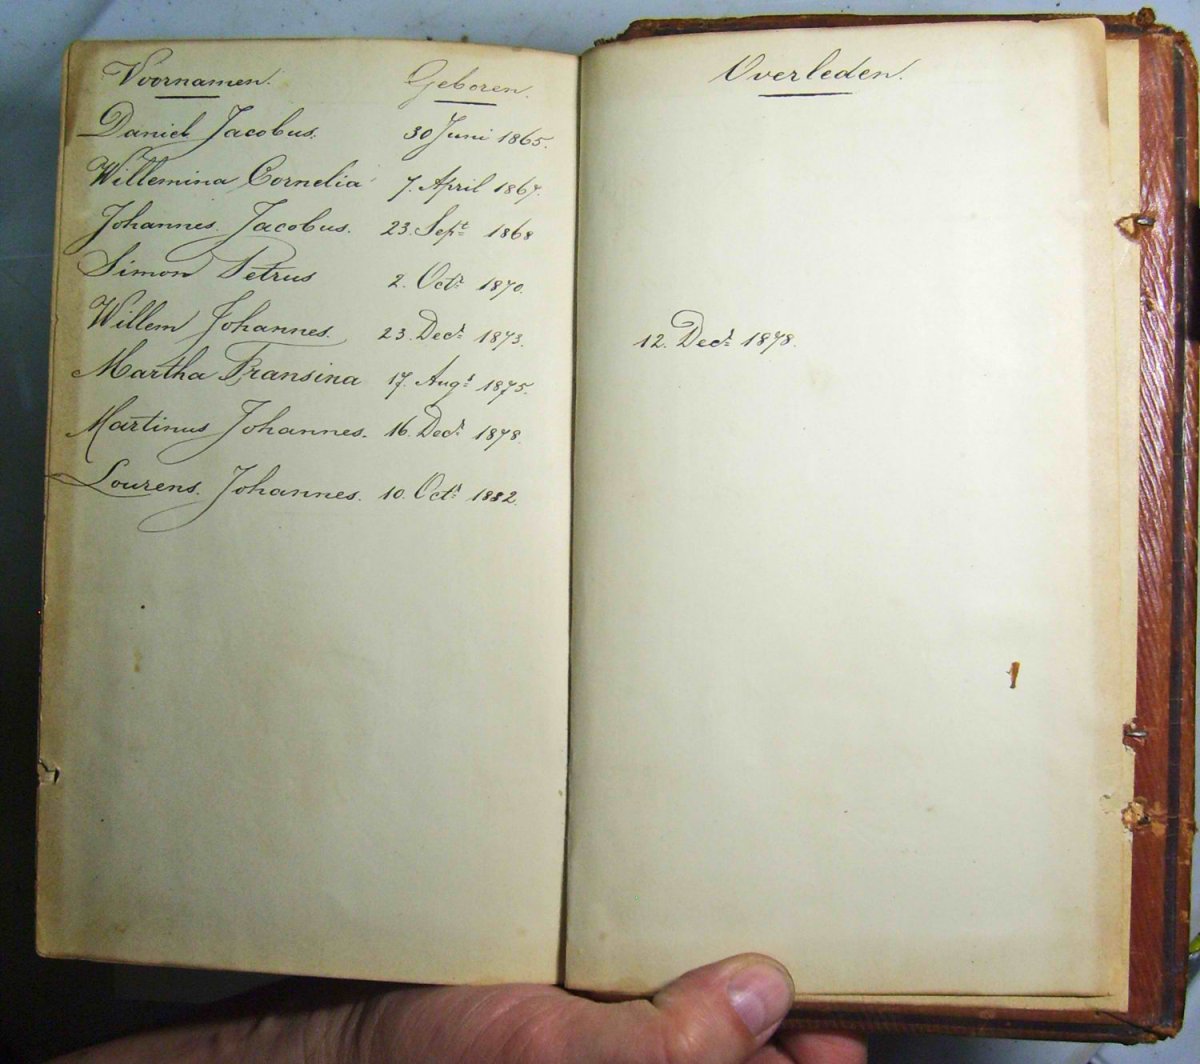 Voornamen. Geboren. Overleden.
Daniel Jacobus. 30 Juni 1865.
Willemina Cornelia 7. April 1867.
Johannes Jacobus. 23. Sept. 1868
Simon Petrus 2. Oct. 1870.
Willem Johannes. 23. Decr. 1873. 12. Decr. 1878.
Martha Fransina 17. Augt. 1875.
Martinus Johannes. 16. Decr. 1878.
Lourens. Johannes. 10. Oct. 1882.